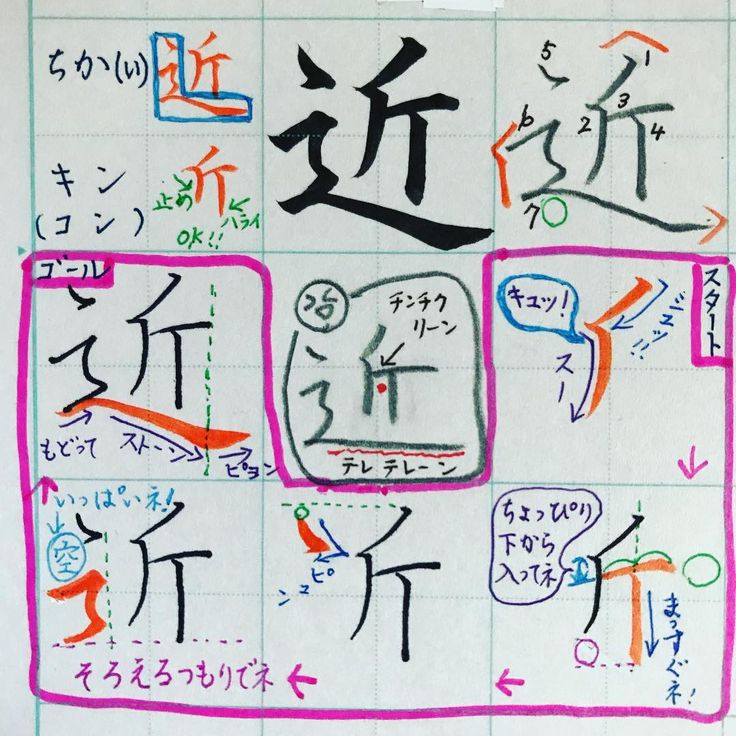 ちか(い)
近
近
近
5
1
6
2
3
4
7
キン
(コン)
斤
止め
ハライ
OK!!
ゴール
近
もどって
ストーン
ピョン
チンチク
リーン
近
テレテレーン
スタート
キュッ!
ジュッ!!
スー
いっぱいネ!
空
斤
そろえるつもりでネ
ピ
斤
ちょっぴり
下から
入ってネ
斤
まっすぐネ!